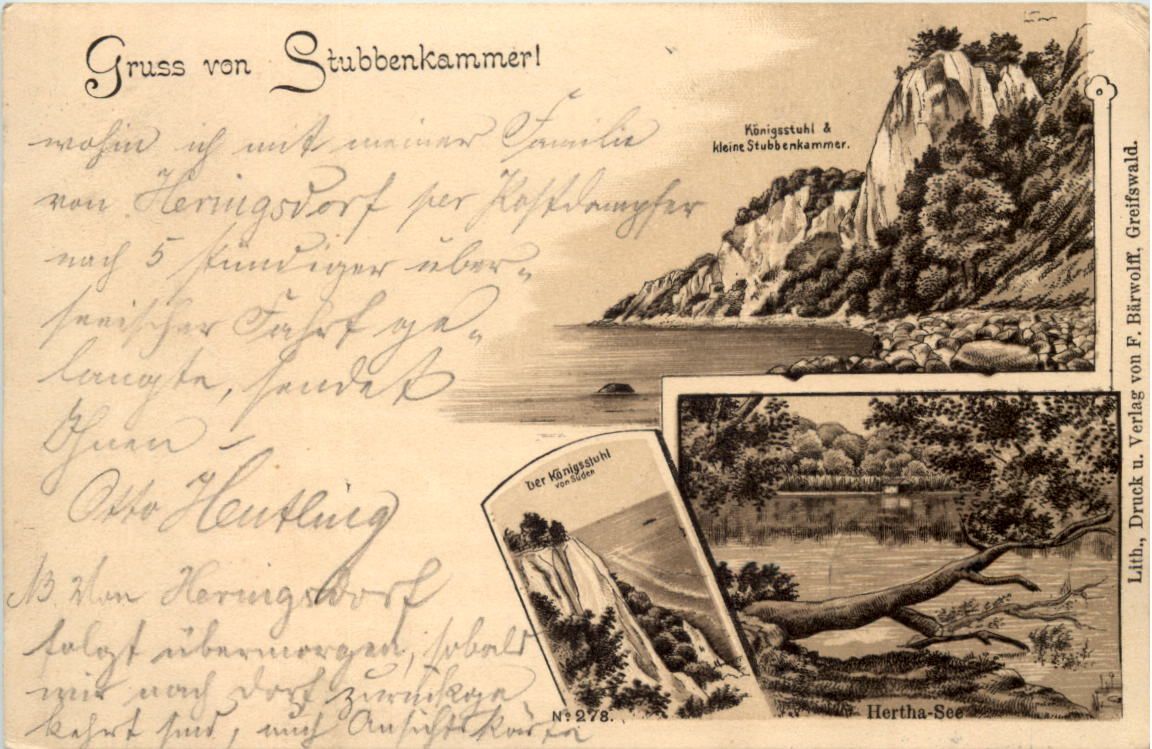 Gruss von Stubbenkammer!
wohin ich mit meiner Familie
von Heringsdorf per Postdampfer
nach 5 stündiger über-
seeischer Fahrt ge-
langte, sendet
Ihnen –
Otto
NB. Von Heringsdorf
folgt übermorgen, sobald
wir nach dort zurückge
kehrt sind, auch Ansichtskarte
Königsstuhl &
kleine Stubbenkammer.
Der Königsstuhl
von Süden
No 278.
Hertha-See
Lith., Druck u. Verlag von F. Bärwolff, Greifswald.